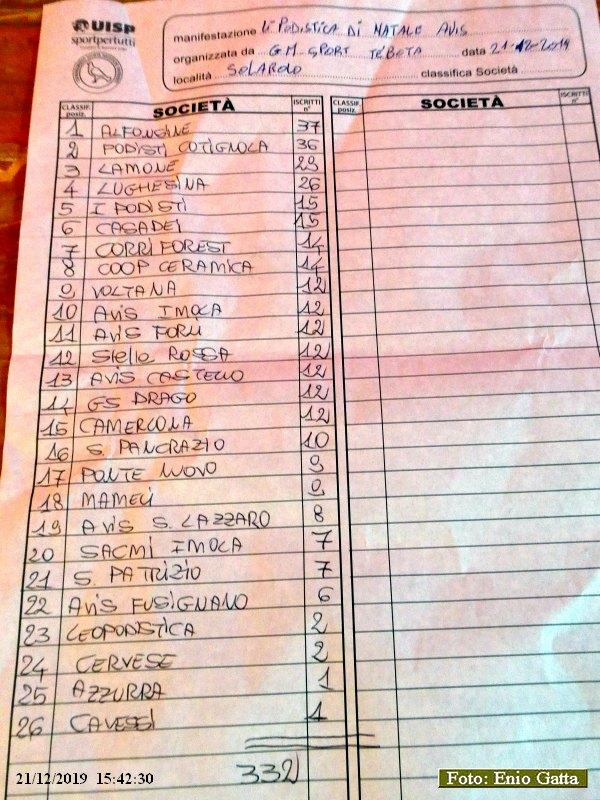 UISP
sportpertutti
manifestazione 4ª PODISTICA DI NATALE AVIS
organizzata da G.M. SPORT TEBETA data 21-12-2019
località SOLAROLO classifica Società
CLASSIF. posiz. SOCIETÀ ISCRITTI n° CLASSIF. posiz. SOCIETÀ ISCRITTI n°
1 ALFONSINE 37
2 PODISTI COTIGNOLA 36
3 LAMONE 29
4 LUGHESINA 26
5 I PODISTI 15
6 CASADEI 15
7 CORRI FOREST 14
8 COOP CERAMICA 14
9 VOLTANA 12
10 AVIS IMOLA 12
11 AVIS FORLI 12
12 Stella ROSSA 12
13 AVIS CASTELLO 12
14 GS DRAGO 12
15 CAMERLONA 12
16 S. PANCRAZIO 10
17 PONTE NUOVO 9
18 MAMELI 9
19 AVIS S. LAZZARO 8
20 SACMI IMOLA 7
21 S. PATRIZIO 7
22 AVIS FUSIGNANO 6
23 LEOPODISTICA 2
24 CERVESE 2
25 AZZURRA 1
26 CAVESSI 1
332
21/12/2019 15:42:30
Foto: Enio Gatta